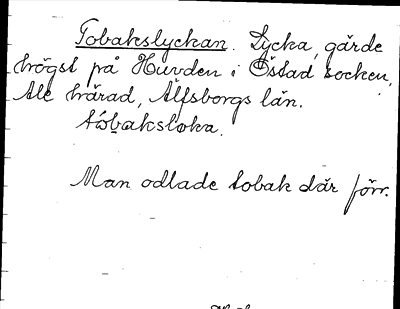 Tobakslyckan. Lycka, gärde
högst på Huvden i Östad socken,
Ale härad, Älfsborgs län.
Man odlade tobak där förr.